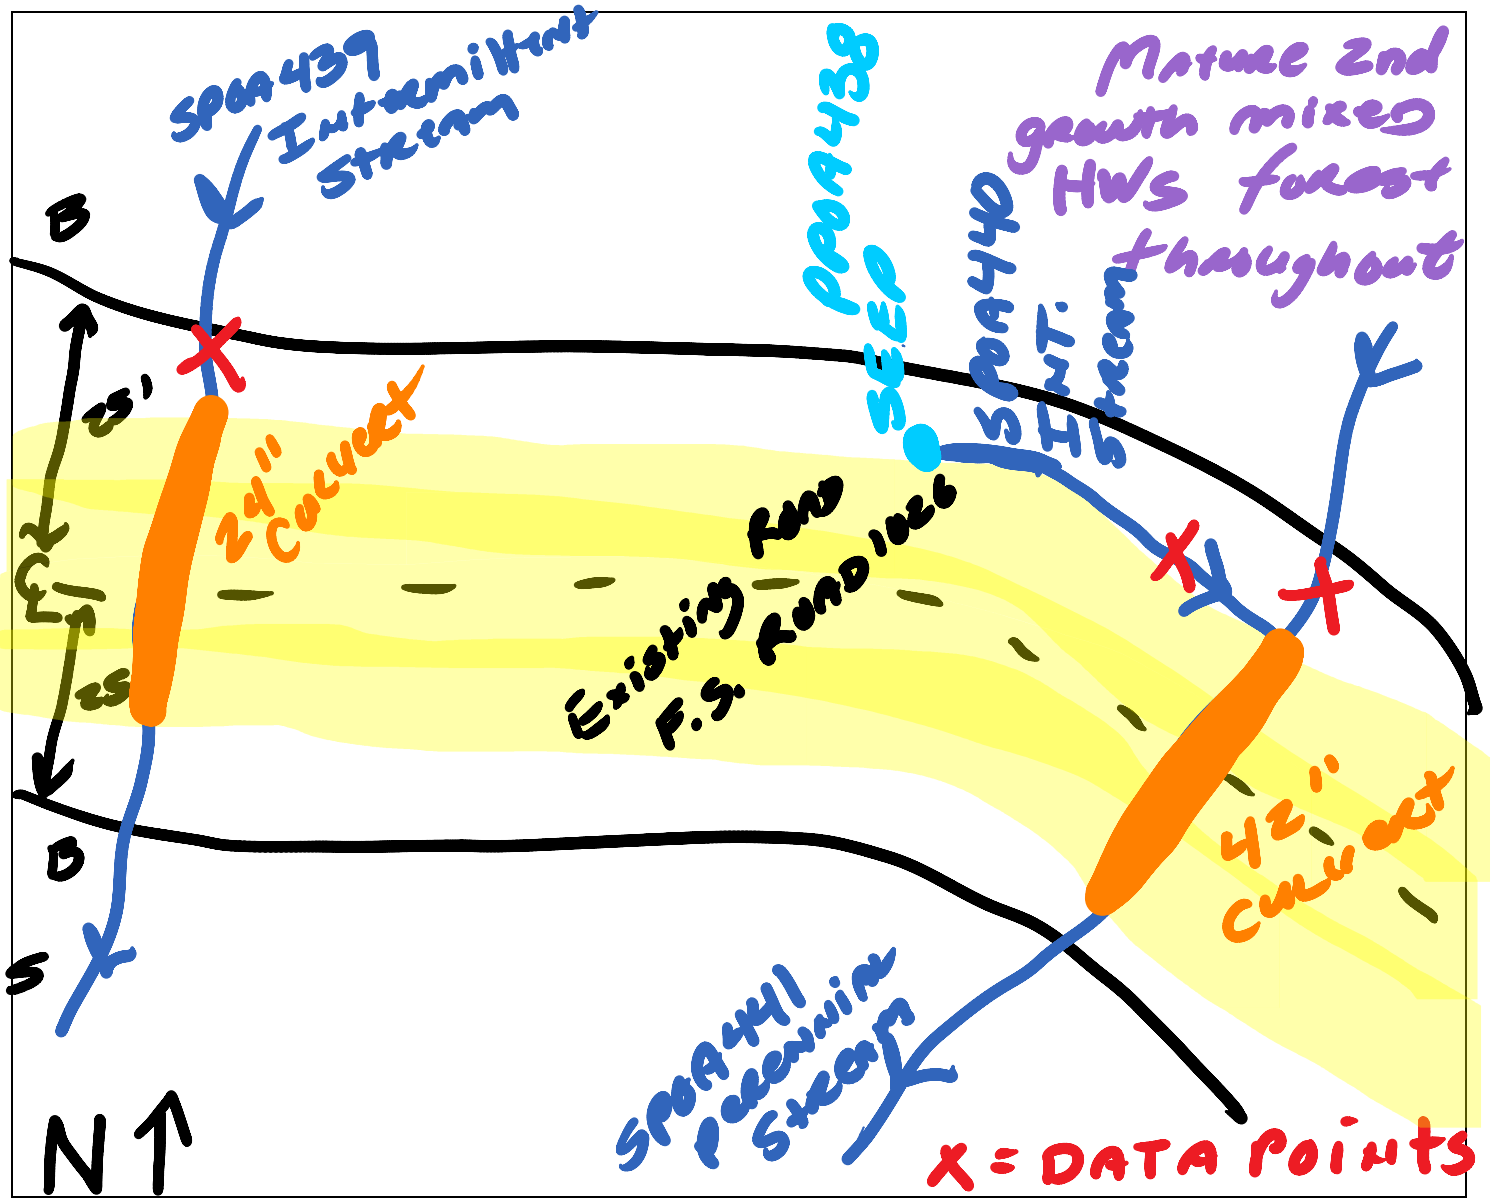 SPOA439
Intermittent
Stream
PPOA438
SEEP
SPOA440
INT.
Stream
Mature 2nd
growth mixed
HWS forest
throughout
B
25'
24"
Culvert
CL
25
Existing Row
F.S. ROAD 1026
B
S
42"
Culvert
SPOA441
perennial
Stream
N
X = DATA POINTS